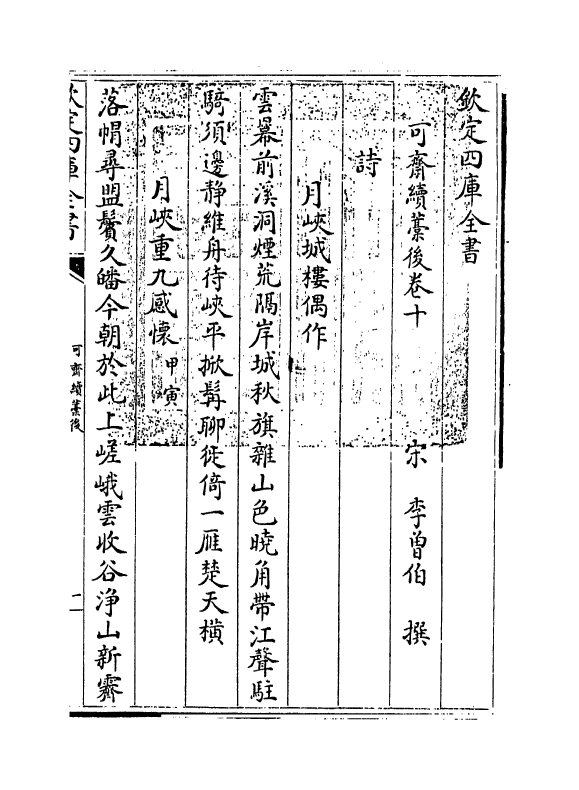 欽定四庫全書
可齋續藁後卷十　宋　李曾伯　撰
詩
月峽城樓偶作
雲羃前溪洞煙荒隔岸城秋旗雜山色曉角帶江聲駐
騎須邊静維舟待峽平掀髯聊徙倚一雁楚天橫
月峽重九感懷甲寅
落帽尋盟鬢久皤今朝於此上嵯峨雲收谷浄山新霽
欽定四庫全書
可齋續藁後
二